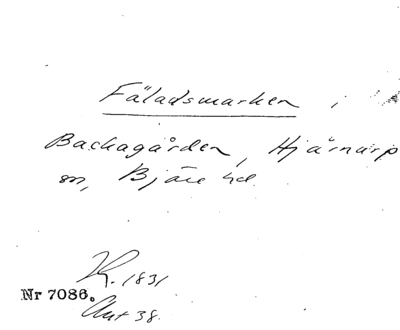 Fäladsmarken i
Backagården, Hjärnarp
sn, Bjäre hd.
K. 1831
Nr 7086.
Ant 38.